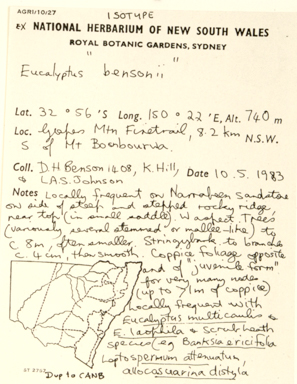 AGRI/10/27
ISOTYPE
ex NATIONAL HERBARIUM OF NEW SOUTH WALES
ROYAL BOTANIC GARDENS, SYDNEY
" "
Eucalyptus bensonii
Lat. 32° 56'S Long. 150° 22'E, Alt. 740 m
Loc. Gospers Mtn Firetrail, 8.2 km N.S.W.
S of Mt Boonbourwa.
Coll. D.H Benson 1408, K. Hill, Date 10. 5. 1983
& L.A.S. Johnson
Notes Locally frequent on Narrabeen sandstone
on side of steep and stepped rocky ridge
near top (in small saddle). W aspect. Trees
(variously several stemmed or mallee-like) to
c 8m, often smaller. Stringybark to branches
c. 4cm, then smooth. Coppice foliage opposite
and of "juvenile form"
for very many nodes
(up to 1m of coppice)
Locally frequent with
Eucalyptus multicaulis &
E. & scrub heath
species eg Banksia ericifolia
Leptospermum attenuatum,
allocasuarina distyla
Dup to CANB